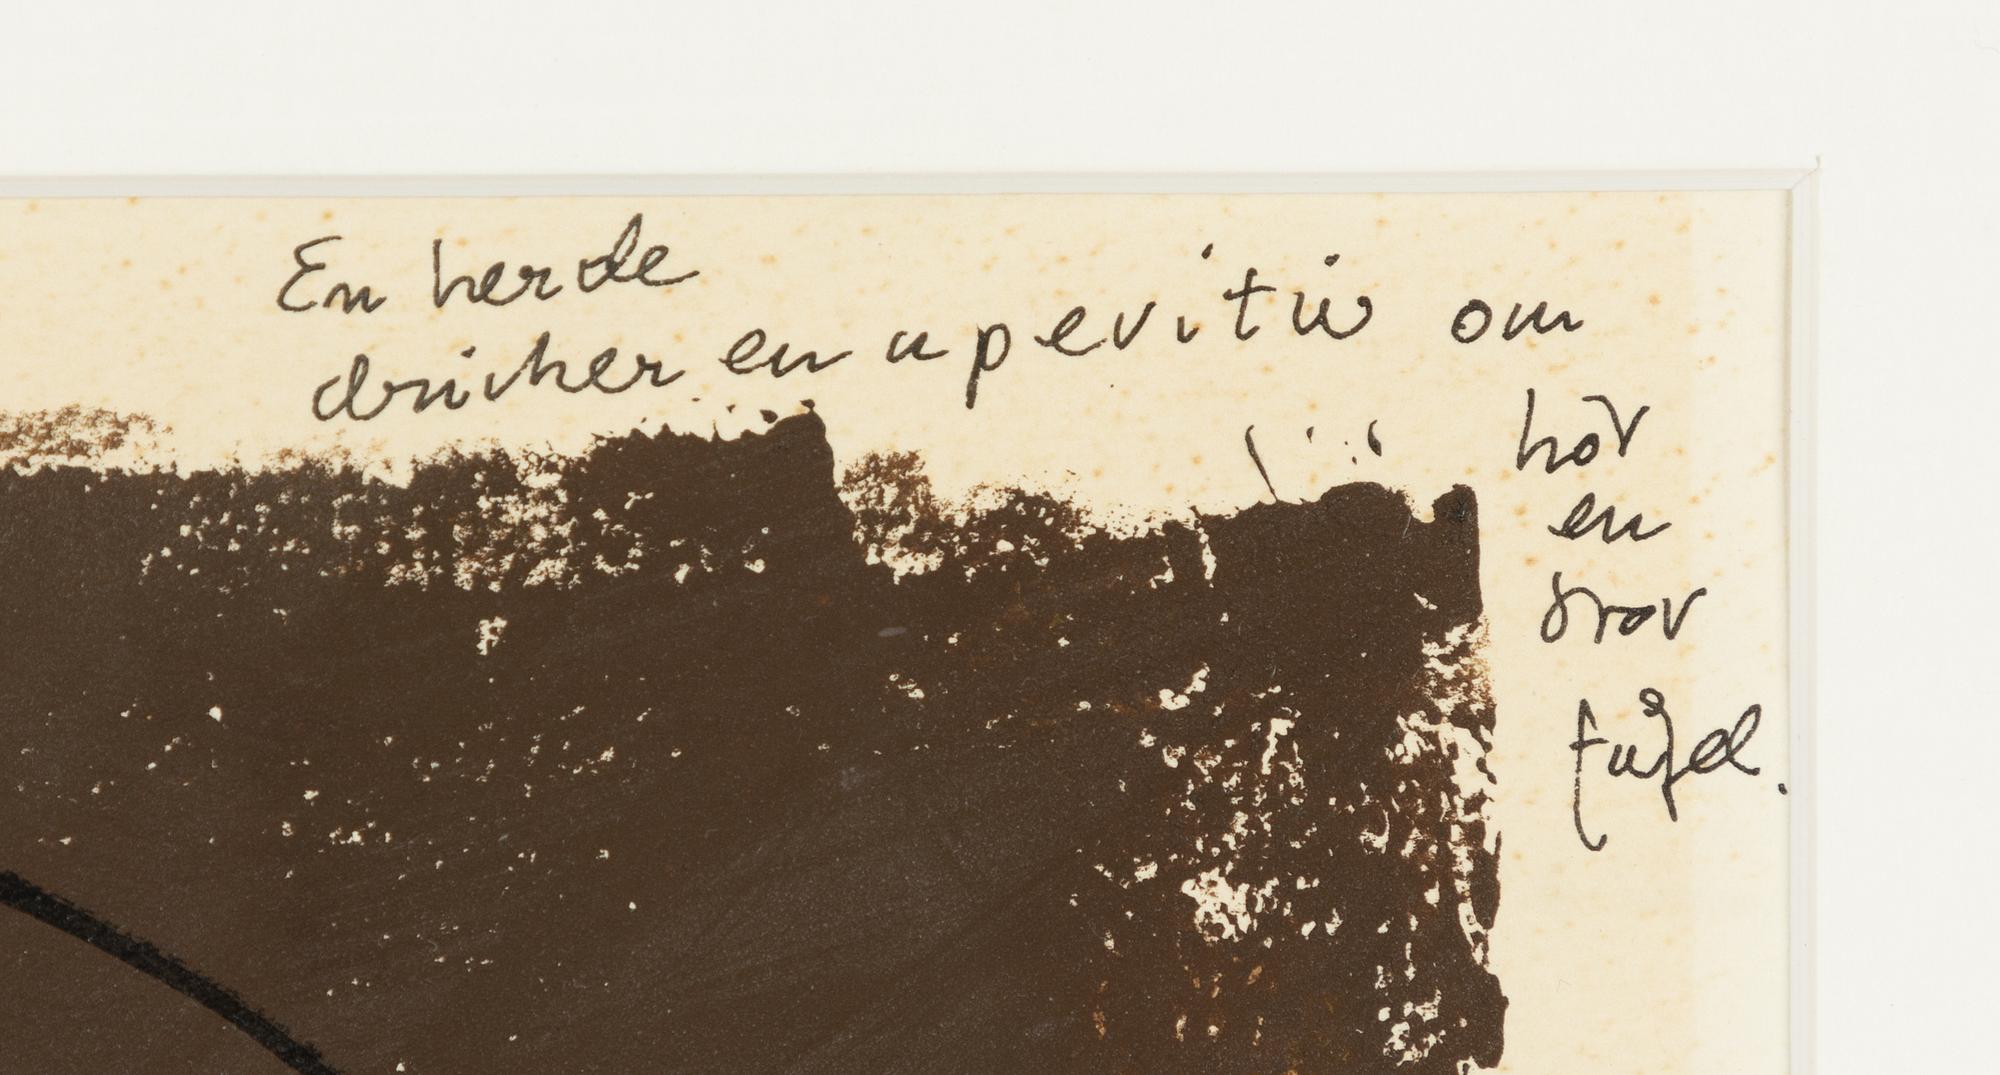 En herde
dricker en aperitiv om
hör
en
trav
fågel.